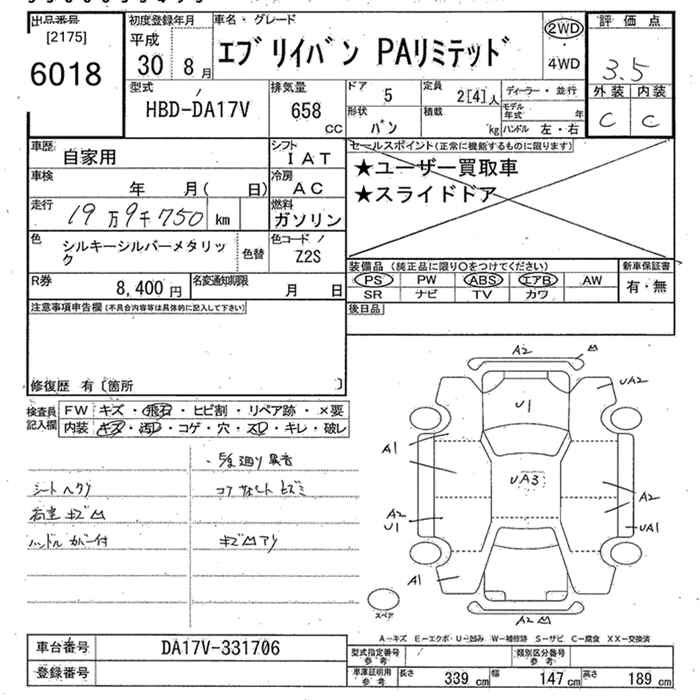 出品番号
[2175]
6018
初度登録年月
平成
30年 8月
車名・グレード
エブリイバン PAリミテッド
2WD
4WD
評価点
3.5
外装 内装
C C
型式
HBD-DA17V
排気量
658
CC
ドア
5
定員
2[4]人
形状
バン
積載
kg
ディーラー・並行
モデル年式 年
ハンドル 左・右
車歴
自家用
シフト
IAT
セールスポイント(正常に機能するものに限ります)
★ユーザー買取車
★スライドドア
車検
年 月( 日)
冷房
AC
走行
19万9千750 km
燃料
ガソリン
色
シルキーシルバーメタリック
色替
色コード
Z2S
装備品 (純正品に限り○をつけてください)
PS PW ABS エアB AW
SR ナビ TV カワ
新車保証書
有・無
R券
8,400円
名変通知期限
月 日
後日品
注意事項申告欄(不具合内容等は具体的に記入して下さい)
修復歴 有〔箇所 〕
検査員記入欄
FW キズ・飛石・ヒビ割・リペア跡・×要
内装 キズ・汚レ・コゲ・穴・スレ・キレ・破レ
シートヘタリ
荷室キズ凹
ハンドルカバー付
キズ凹アリ
A2 凹
UA2
U1
A1
UA3
A2
A2
U1
UA1
A1
A2凹
スペア
A-キズ E-エクボ・U-凹み W-補修跡 S-サビ C-腐食 XX-交換済
車台番号
DA17V-331706
登録番号
型式指定番号
参考
類別区分番号
参考
車庫証明用
参考
長さ 339 cm 幅 147 cm 高さ 189 cm